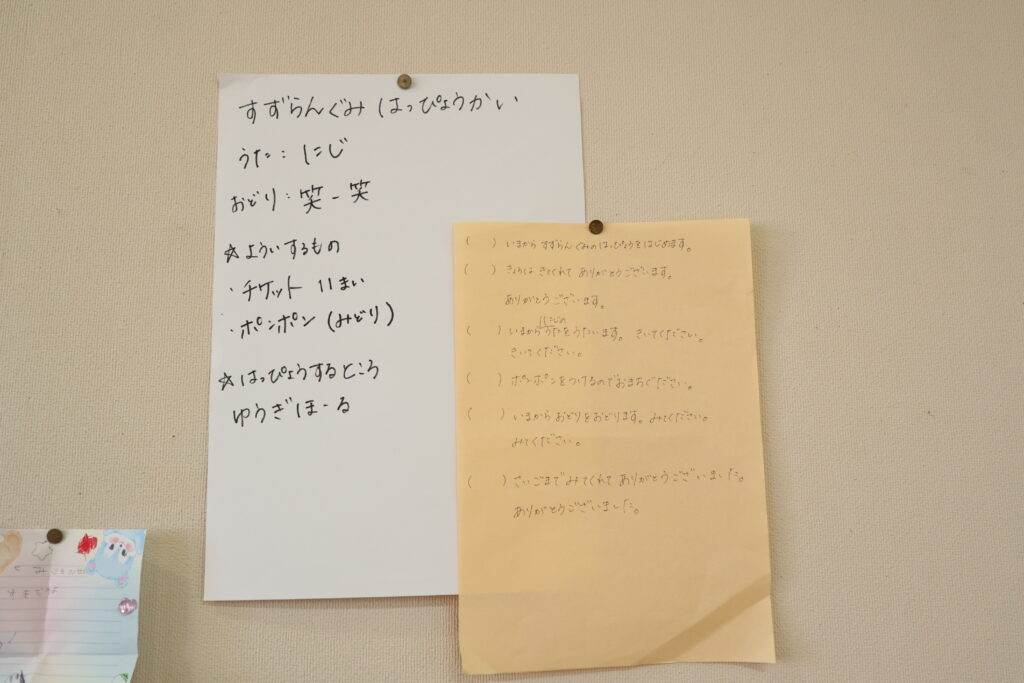 すずらんぐみ はっぴょうかい
うた: にじ
おどり: 笑-笑
☆よういするもの
・チケット 11まい
・ポンポン(みどり)
☆はっぴょうするところ
ゆうぎほーる
(　) いまから すずらんぐみのはっぴょうをはじめます。
(　) きょうは きてくれて ありがとうございます。
ありがとうございます。
にじの
(　) いまからうたをうたいます。 きいてください。
きいてください。
(　) ポンポンをつけるのでおまちください。
(　) いまから おどりをおどります。 みてください。
みてください。
(　) さいごまで みてくれて ありがとうございました。
ありがとうございました。